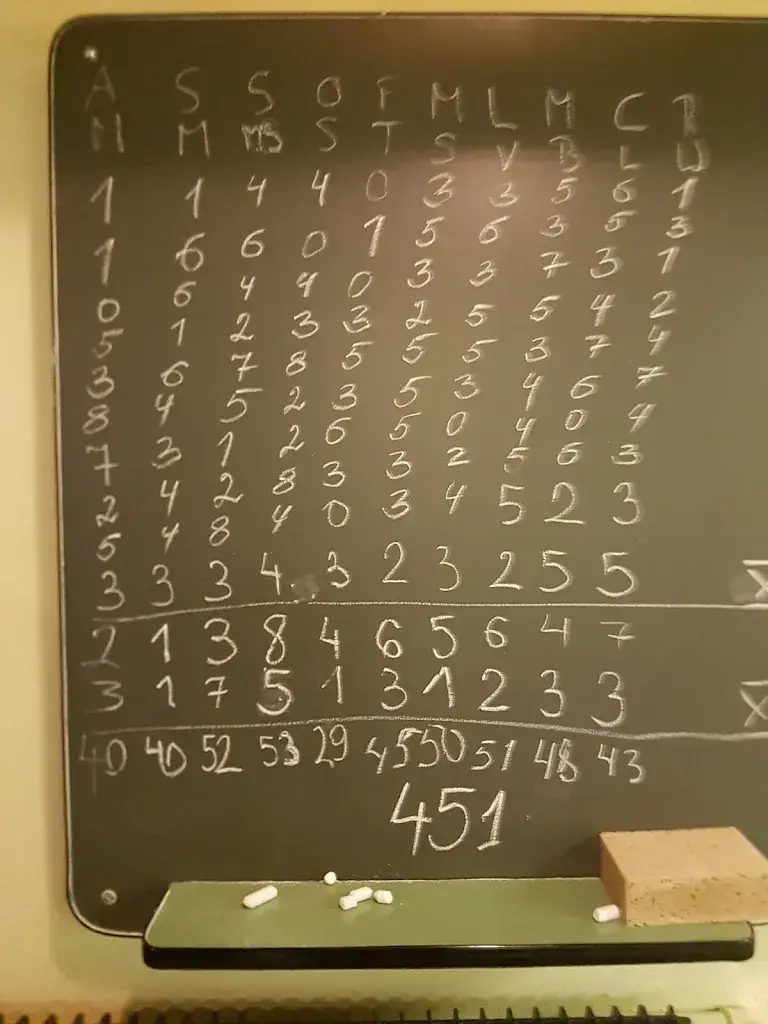 A S S O F M L M C
M M MB S T S V B L
1 1 4 4 0 3 3 5 6 1
1 6 6 0 1 5 6 3 5 3
0 6 4 4 0 3 3 7 3 1
5 1 2 3 3 2 5 5 4 2
3 6 7 8 5 5 5 3 7 4
8 4 5 2 3 5 3 4 6 7
7 3 1 2 6 5 0 4 0 4
2 4 2 8 3 3 2 5 6 3
5 4 8 4 0 3 4 5 2 3
3 3 3 4 3 2 3 2 5 5
2 1 3 8 4 6 5 6 4 7
3 1 7 5 1 3 1 2 3 3
40 40 52 53 29 45 50 51 48 43
451